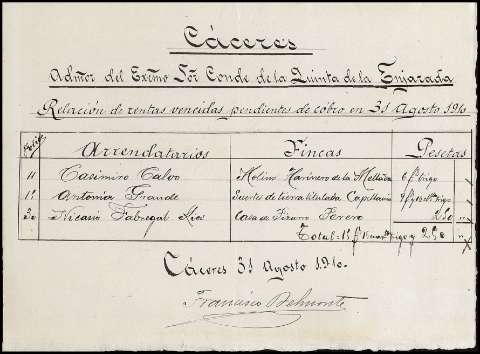 Cáceres
Admor del Exmo Sor Conde de la Quinta de la Enjarada
Relación de rentas vencidas pendientes de cobro en 31 Agosto 1910.
Arrendatarios Fincas Pesetas
11 Casimiro Calvo Molino Harinero de la Mellada 6 fs trigo
Antonia Grande Suertes de tierra titulada Capellanía trigo
Nicasio Fabregat Casa de Pizarro 250
Total trigo y 250
Cáceres 31 Agosto 1910.
Francisco Belmonte